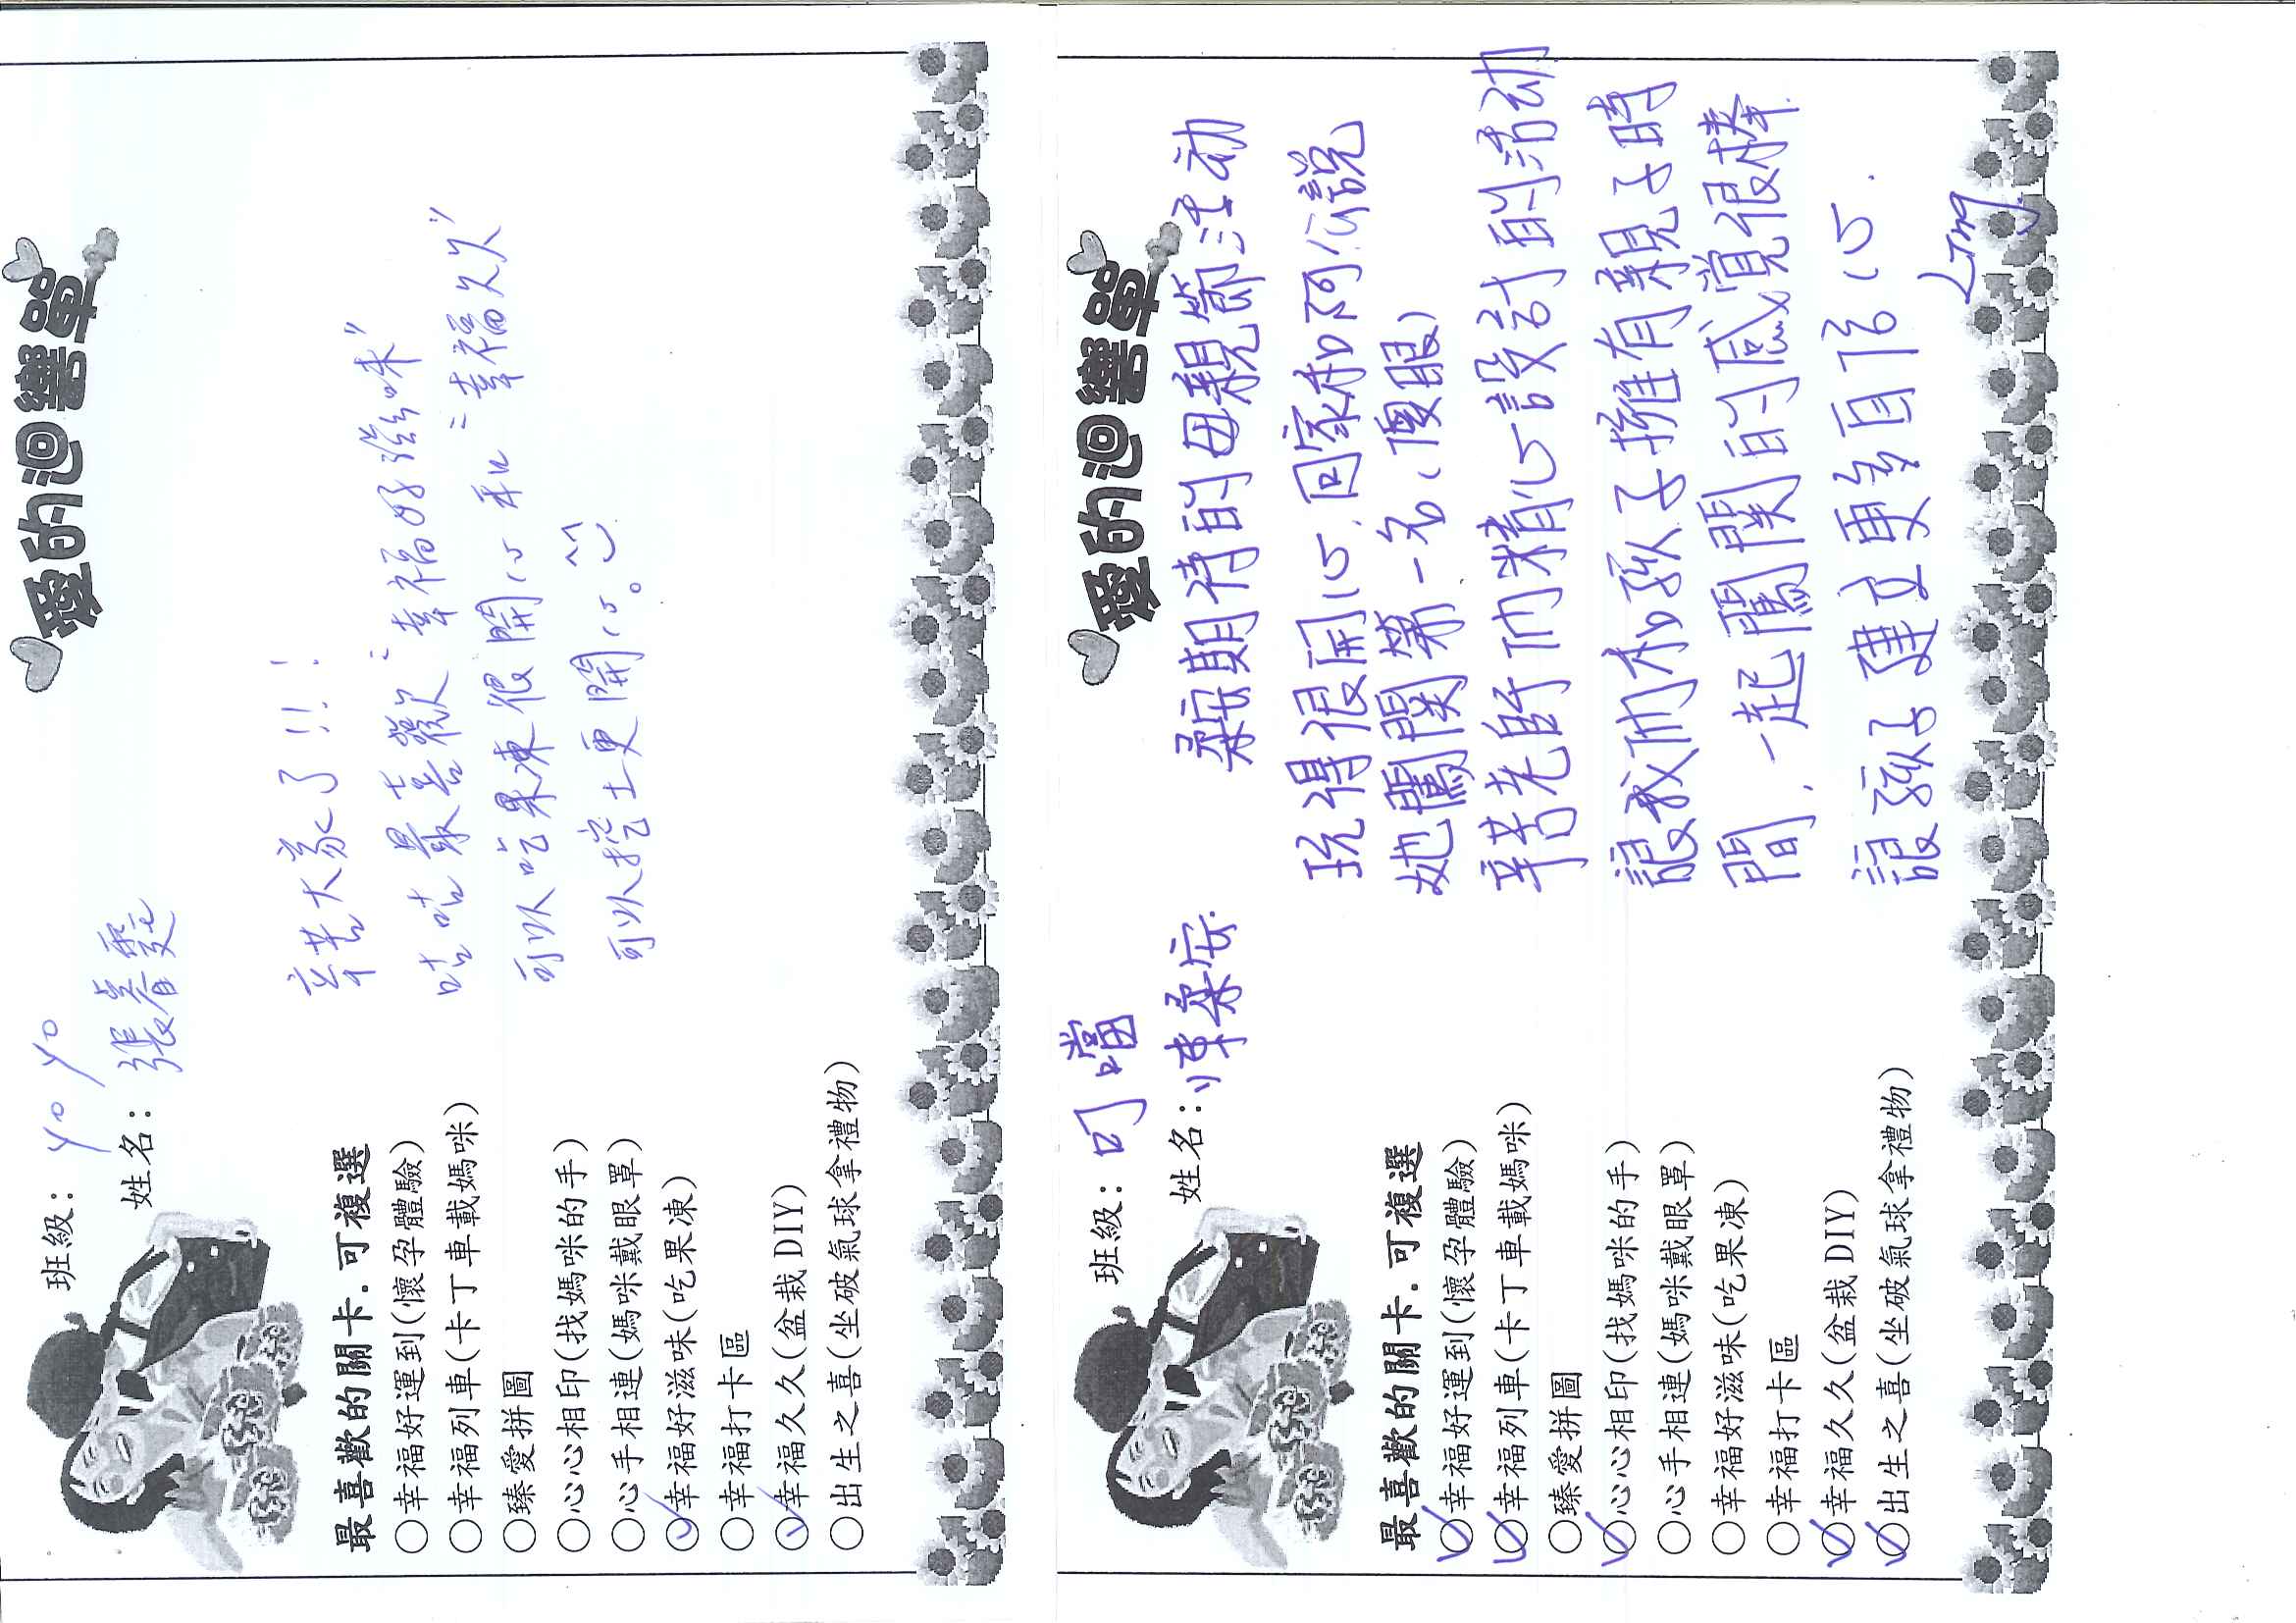 愛的迴響單
班級: yo yo
姓名: 張春霙
最喜歡的關卡.可複選
○幸福好運到(懷孕體驗)
○幸福列車(卡丁車載媽咪)
○臻愛拼圖
○心心相印(找媽咪的手)
○心手相連(媽咪戴眼罩)
○幸福好滋味(吃果凍)
○幸福打卡區
○幸福久久(盆栽DIY)
○出生之喜(坐破氣球拿禮物)
辛苦大家了!!!
咕咕最喜歡"幸福好滋味"
可以吃果凍很開心和"幸福久久"
可以挖土更開心。^^
愛的迴響單
班級: 叮噹
姓名: 陳柔安
最喜歡的關卡.可複選
○幸福好運到(懷孕體驗)
○幸福列車(卡丁車載媽咪)
○臻愛拼圖
○心心相印(找媽咪的手)
○心手相連(媽咪戴眼罩)
○幸福好滋味(吃果凍)
○幸福打卡區
○幸福久久(盆栽DIY)
○出生之喜(坐破氣球拿禮物)
柔安期待的母親節活动
玩得很開心.回家和阿公說
她闖關第一名、(傻眼)
辛苦老師們精心設計的活动
讓我们和孩子擁有親子時
間.一起闖關的感覺很棒.
讓孩子建立更多自信心.